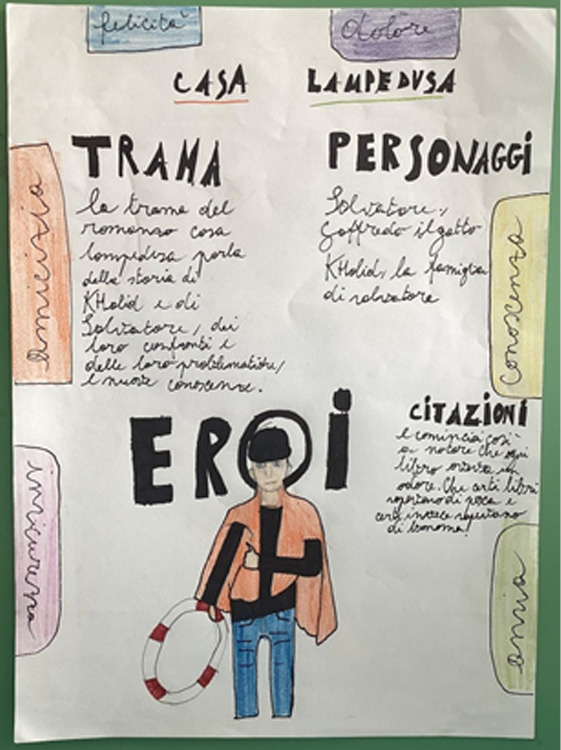 felicità
dolore
CASA LAMPEDUSA
amicizia
TRAMA
la trama del
romanzo casa
lampedusa parla
della storia di
KHalid e di
Salvatore, dei
loro confronti e
delle loro problematiche,
e nuove conoscenze.
PERSONAGGI
Salvatore,
Goffredo il gatto
KHalid, la famiglia
di salvatore
conoscenza
EROI
CITAZIONI
e comincia così
a notare che ogni
libro ha un
odore. Che certi libri
sapevano di pesca e
certi invece sapevano
di
insicurezza
ansia